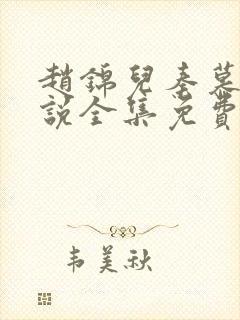 趙錦兒秦慕
說全集免費
韦美秋